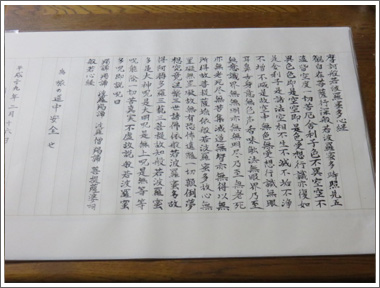 摩訶般若波羅蜜多心経
観自在菩薩行深般若波羅蜜多時照見五
蘊皆空度一切苦厄舎利子色不異空空不
異色色即是空空即是色受想行識亦復如
是舎利子是諸法空相不生不滅不垢不浄
不増不減是故空中無色無受想行識無眼
耳鼻舌身意無色声香味触法無眼界乃至
無意識界無無明亦無無明尽乃至無老死
亦無老死尽無苦集滅道無智亦無得以無
所得故菩提薩埵依般若波羅蜜多故心無
罣礙無罣礙故無有恐怖遠離一切顛倒夢
想究竟涅槃三世諸仏依般若波羅蜜多故
得阿耨多羅三藐三菩提故知般若波羅蜜
多是大神呪是大明呪是無上呪是無等等
呪能除一切苦真実不虚故説般若波羅蜜
多呪即説呪曰
羯諦 羯諦 波羅羯諦 波羅僧羯諦 菩提薩婆訶
般若心経
為 旅の道中安全 也
平成十九年 二月十六日